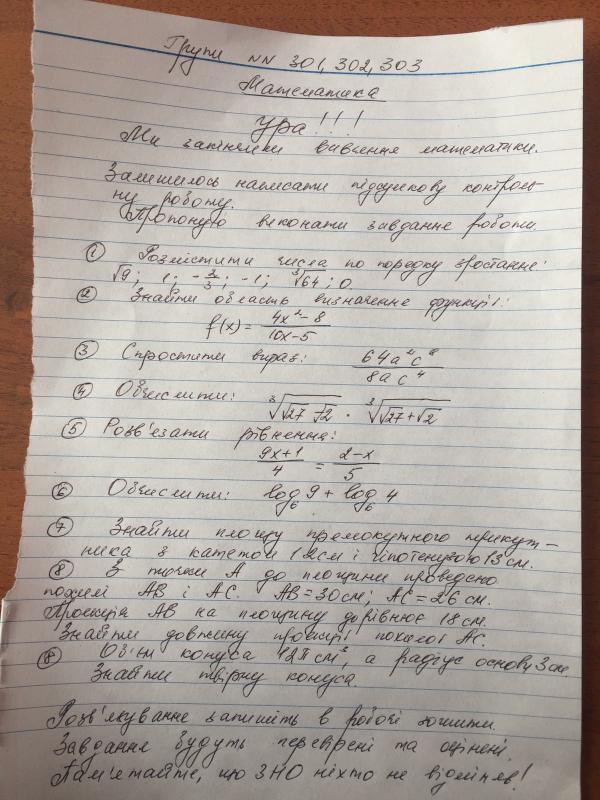 Групи NN 301, 302, 303
Математика
Ура!!!
Ми закінчили вивчення математики.
Залишилось написати підсумкову контроль-
ну роботу.
Пропоную виконати завдання роботи.
① Розмістити числа по порядку зростання:
√9; 1; -2/3; -1; ∛64; 0.
② Знайти область визначення функції:
f(x) = (4x² - 8)/(10x - 5)
③ Спростити вираз: 64a²c⁸/8ac⁴
④ Обчислити: ∛(√27 - √2) · ∛(√27 + √2)
⑤ Розв'язати рівняння:
(9x+1)/4 = (2-x)/5
⑥ Обчислити: log₆ 9 + log₆ 4
⑦ Знайти площу прямокутного трикут-
ника з катетом 12см і гіпотенузою 13 см.
⑧ З точки А до площини проведено
похилі АВ і АС. АВ = 30 см; АС = 26 см.
Проекція АВ на площину дорівнює 18 см.
Знайти довжину проекції похилої АС.
⑧ Об'єм конуса 12π см³, а радіус основи 3 см.
Знайти твірну конуса.
Розв'язування запишіть в робочі зошити.
Завдання будуть перевірені та оцінені.
Пам'ятайте, що ЗНО ніхто не відміняв!